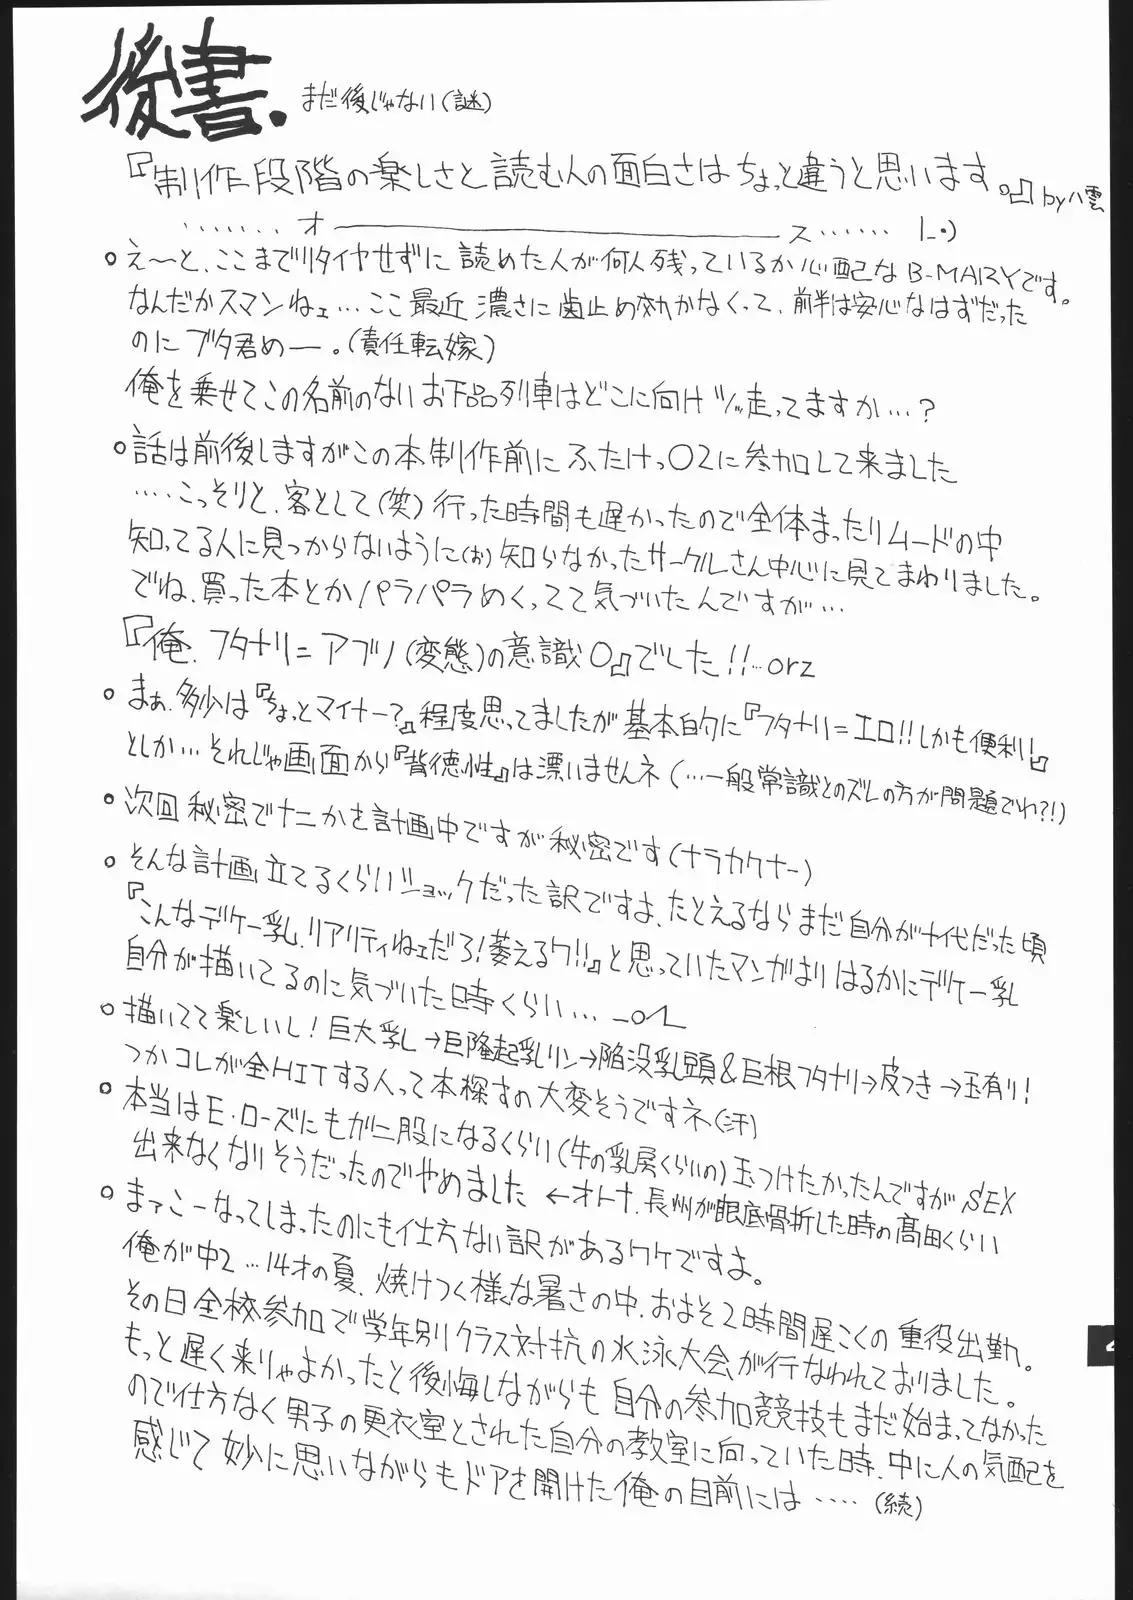 後書. まだ後じゃない(謎)
『制作段階の楽しさと読む人の面白さはちょっと違うと思います。』by八雲
……. オ――――――ス…… |_・)
○えーと、ここまでリタイヤせずに読めた人が何人残っているか心配なB-MARYです。
なんだかスマンねェ…ここ最近濃さに歯止め効かなくって、前半は安心なはずだった
のにブタ君めー。(責任転嫁)
俺を乗せてこの名前のないお下品列車はどこに向けツッ走ってますか…?
○話は前後しますがこの本制作前にふたけっ02に参加して来ました
….こっそりと、客として(笑)行った時間も遅かったので全体まったりムードの中
知ってる人に見つからないように(お)知らなかったサークルさん中心に見てまわりました。
でね、買った本とかパラパラめくってて気づいたんですが…
『俺、フタナリ=アブノ(変態)の意識0』でした!!…orz
○まぁ、多少は『ちょっとマイナー?』程度思ってましたが基本的に『フタナリ=エロ!!しかも便利!』
としか…それじゃ画面から『背徳性』は漂いませんネ(…一般常識とのズレの方が問題でわ?!)
○次回秘密でナニかを計画中ですが秘密です(ナラカクナー)
○そんな計画立てるくらいショックだった訳ですよ、たとえるならまだ自分が十代だった頃
『こんなデケー乳、リアリティねェだろ!萎えるワ!!』と思っていたマンガよりはるかにデケー乳
自分が描いてるのに気づいた時くらい… _o/L
○描いてて楽しいし!巨大乳→巨隆起乳リン→陥没乳頭&巨根フタナリ→皮つき→玉有り!
つかコレが全HITする人って本探すの大変そうですネ(汗)
○本当はE・ローズにもが二股になるくらい(牛の乳房くらいの)玉つけたかったんですがSEX
出来なくなりそうだったのでやめました ←オトナ、長州が眼底骨折した時の髙田くらい
○まァこーなってしまったのにも仕方ない訳があるワケですよ。
俺が中2…14才の夏、焼けつく様な暑さの中、およそ2時間遅こくの重役出勤。
その日全校参加で学年別クラス対抗の水泳大会が行なわれておりました。
もっと遅く来りゃよかったと後悔しながらも自分の参加競技もまだ始まってなかった
ので仕方なく男子の更衣室とされた自分の教室に向っていた時、中に人の気配を
感じて妙に思いながらもドアを開けた俺の目前には….(続)